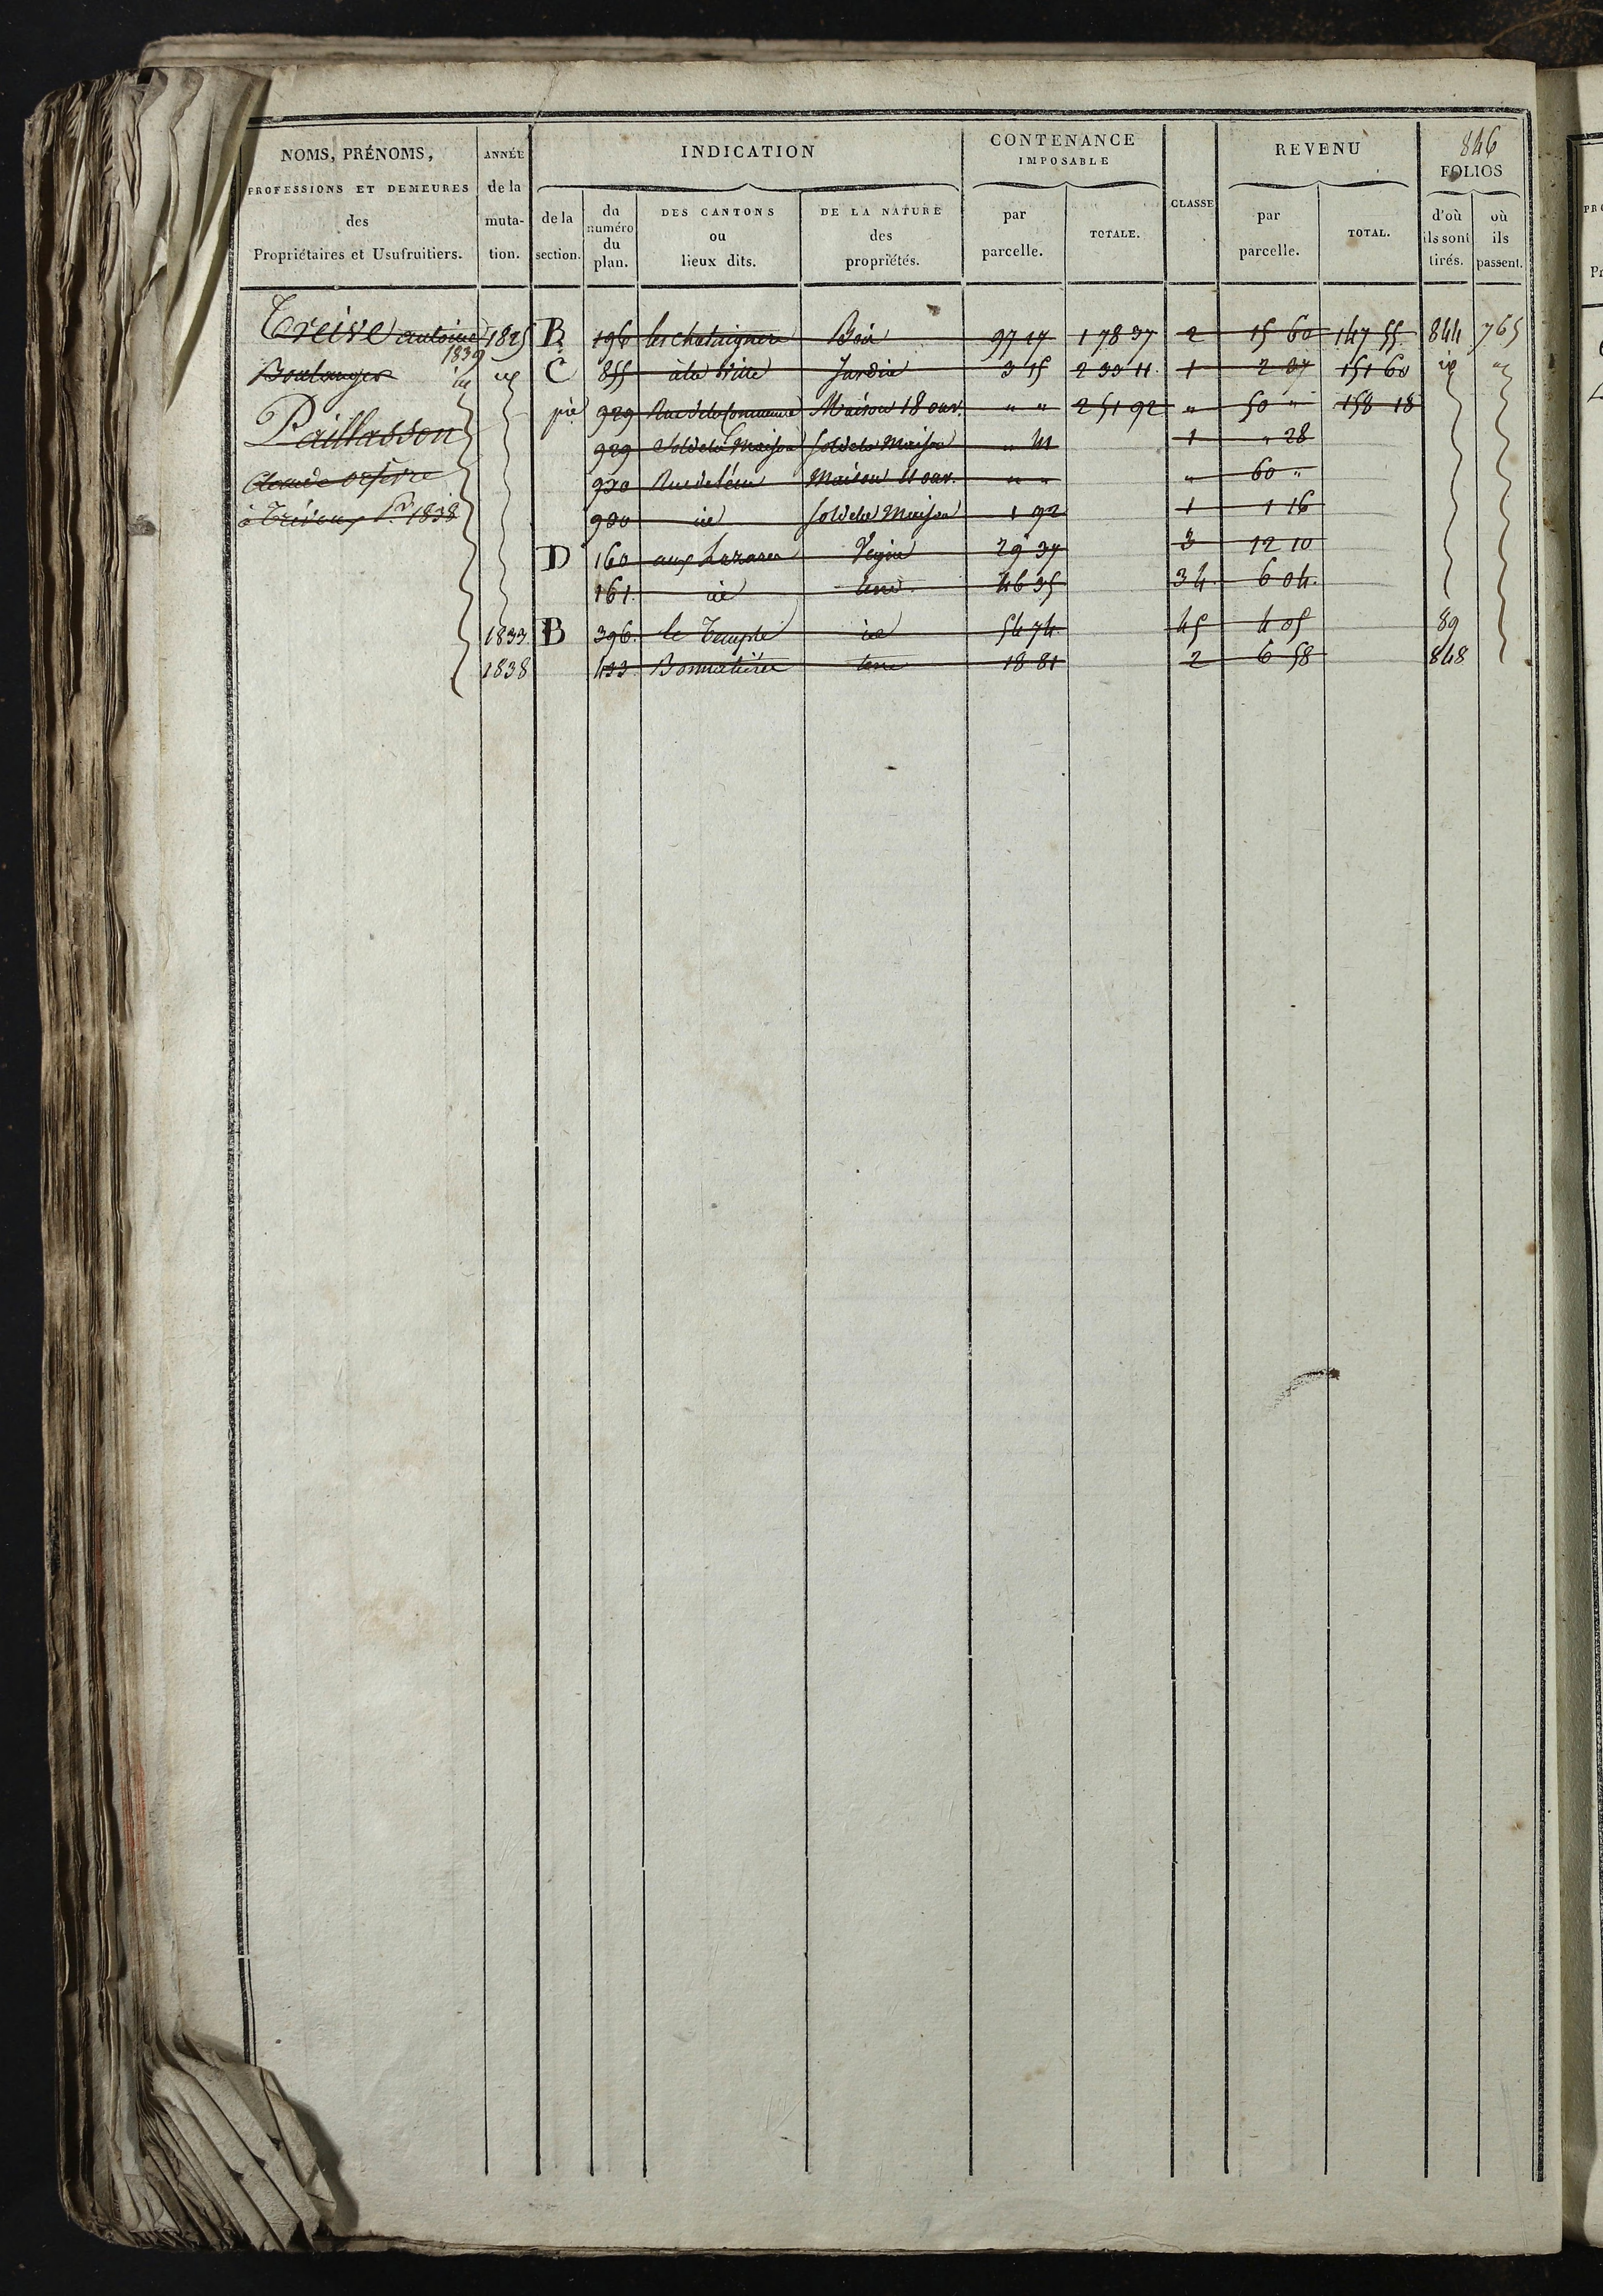 846
NOMS, PRÉNOMS, ANNÉE INDICATION CONTENANCE IMPOSABLE CLASSE REVENU FOLIOS
PROFESSIONS ET DEMEURES des Propriétaires et Usufruitiers. de la muta- tion. de la section. du numéro du plan. DES CANTONS ou lieux dits. DE LA NATURE des propriétés. par parcelle. TOTALE. par parcelle. TOTAL. d'où ils sont tirés. où ils passent.
Treive antoine 1825 B 196 les chataignere Bois 97 17 1 78 37 2 15 60 147 55 844 765
1839
Boulanger id id C 855 à la Ville Jardin 3 15 2 33 11 1 2 37 151 60 id "
Paillasson pie 929 Rue de la Commune Maison 18 ouv. " " 2 51 92 " 50 " 158 18
929 Sol de la Maison Sol de la Maison " 1 " 28
Claude orfévre 930 Maison 11 ouv. " " " 60 "
à Trévoux Pr 1838 930 id Sol de la Maison 1 92 1 1 16
D 160 aux Lazares Vigne 29 37 3 12 10
161. id terre 46 35 34. 6 04.
1833. B 396. le Temple id 54 74. 45 4 05 89
1838 433. terre 18 81 2 6 58 848